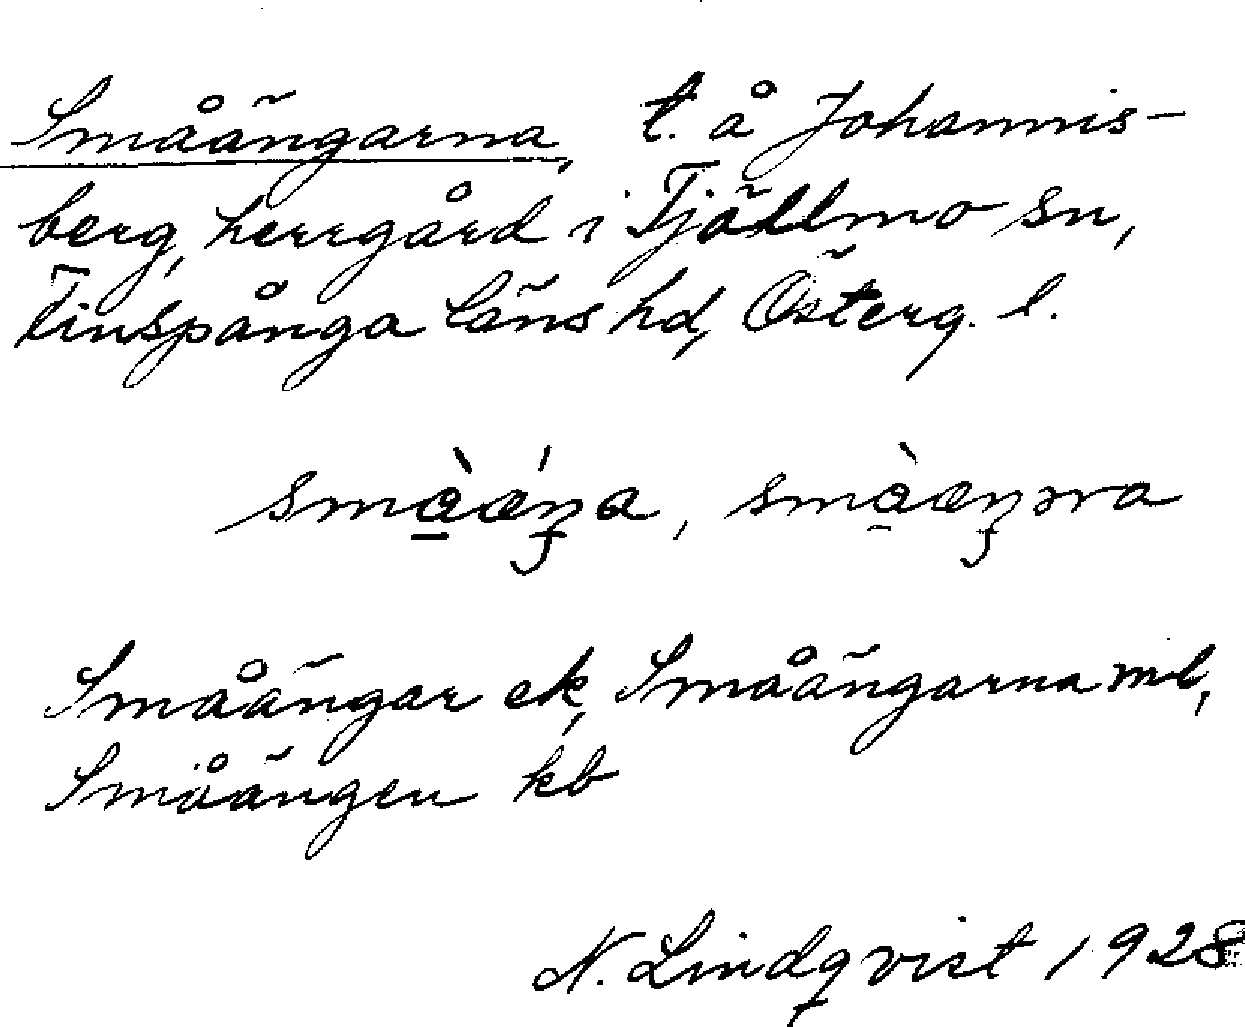 Småängarna, t. å Johannis-
berg, herrgård i Tjällmo sn,
Finspånga läns hd, Österg. l.
småæŋa, småæŋəra
Småängar ek, Småängarna ml,
Småängen kb
N. Lindqvist 1928